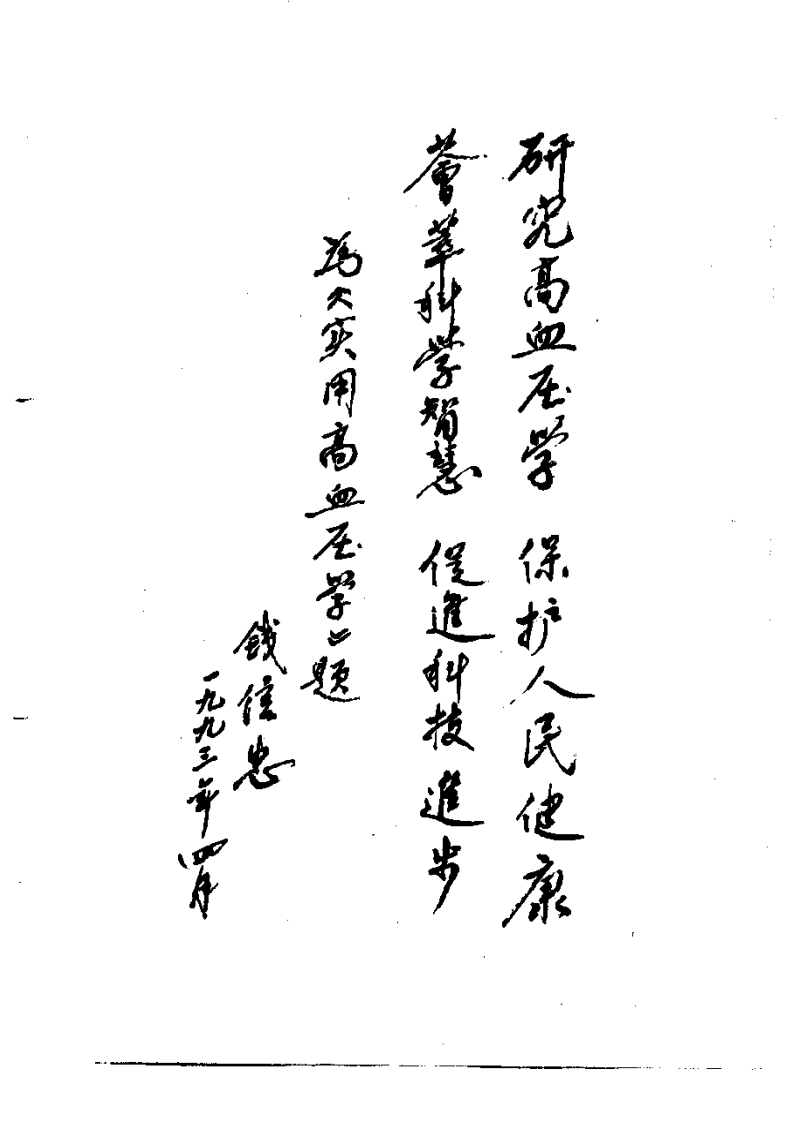 研究高血压学 保护人民健康
薈萃科学智慧 促進科技進步
為《实用高血压学》題
錢信忠
一九九三年四月